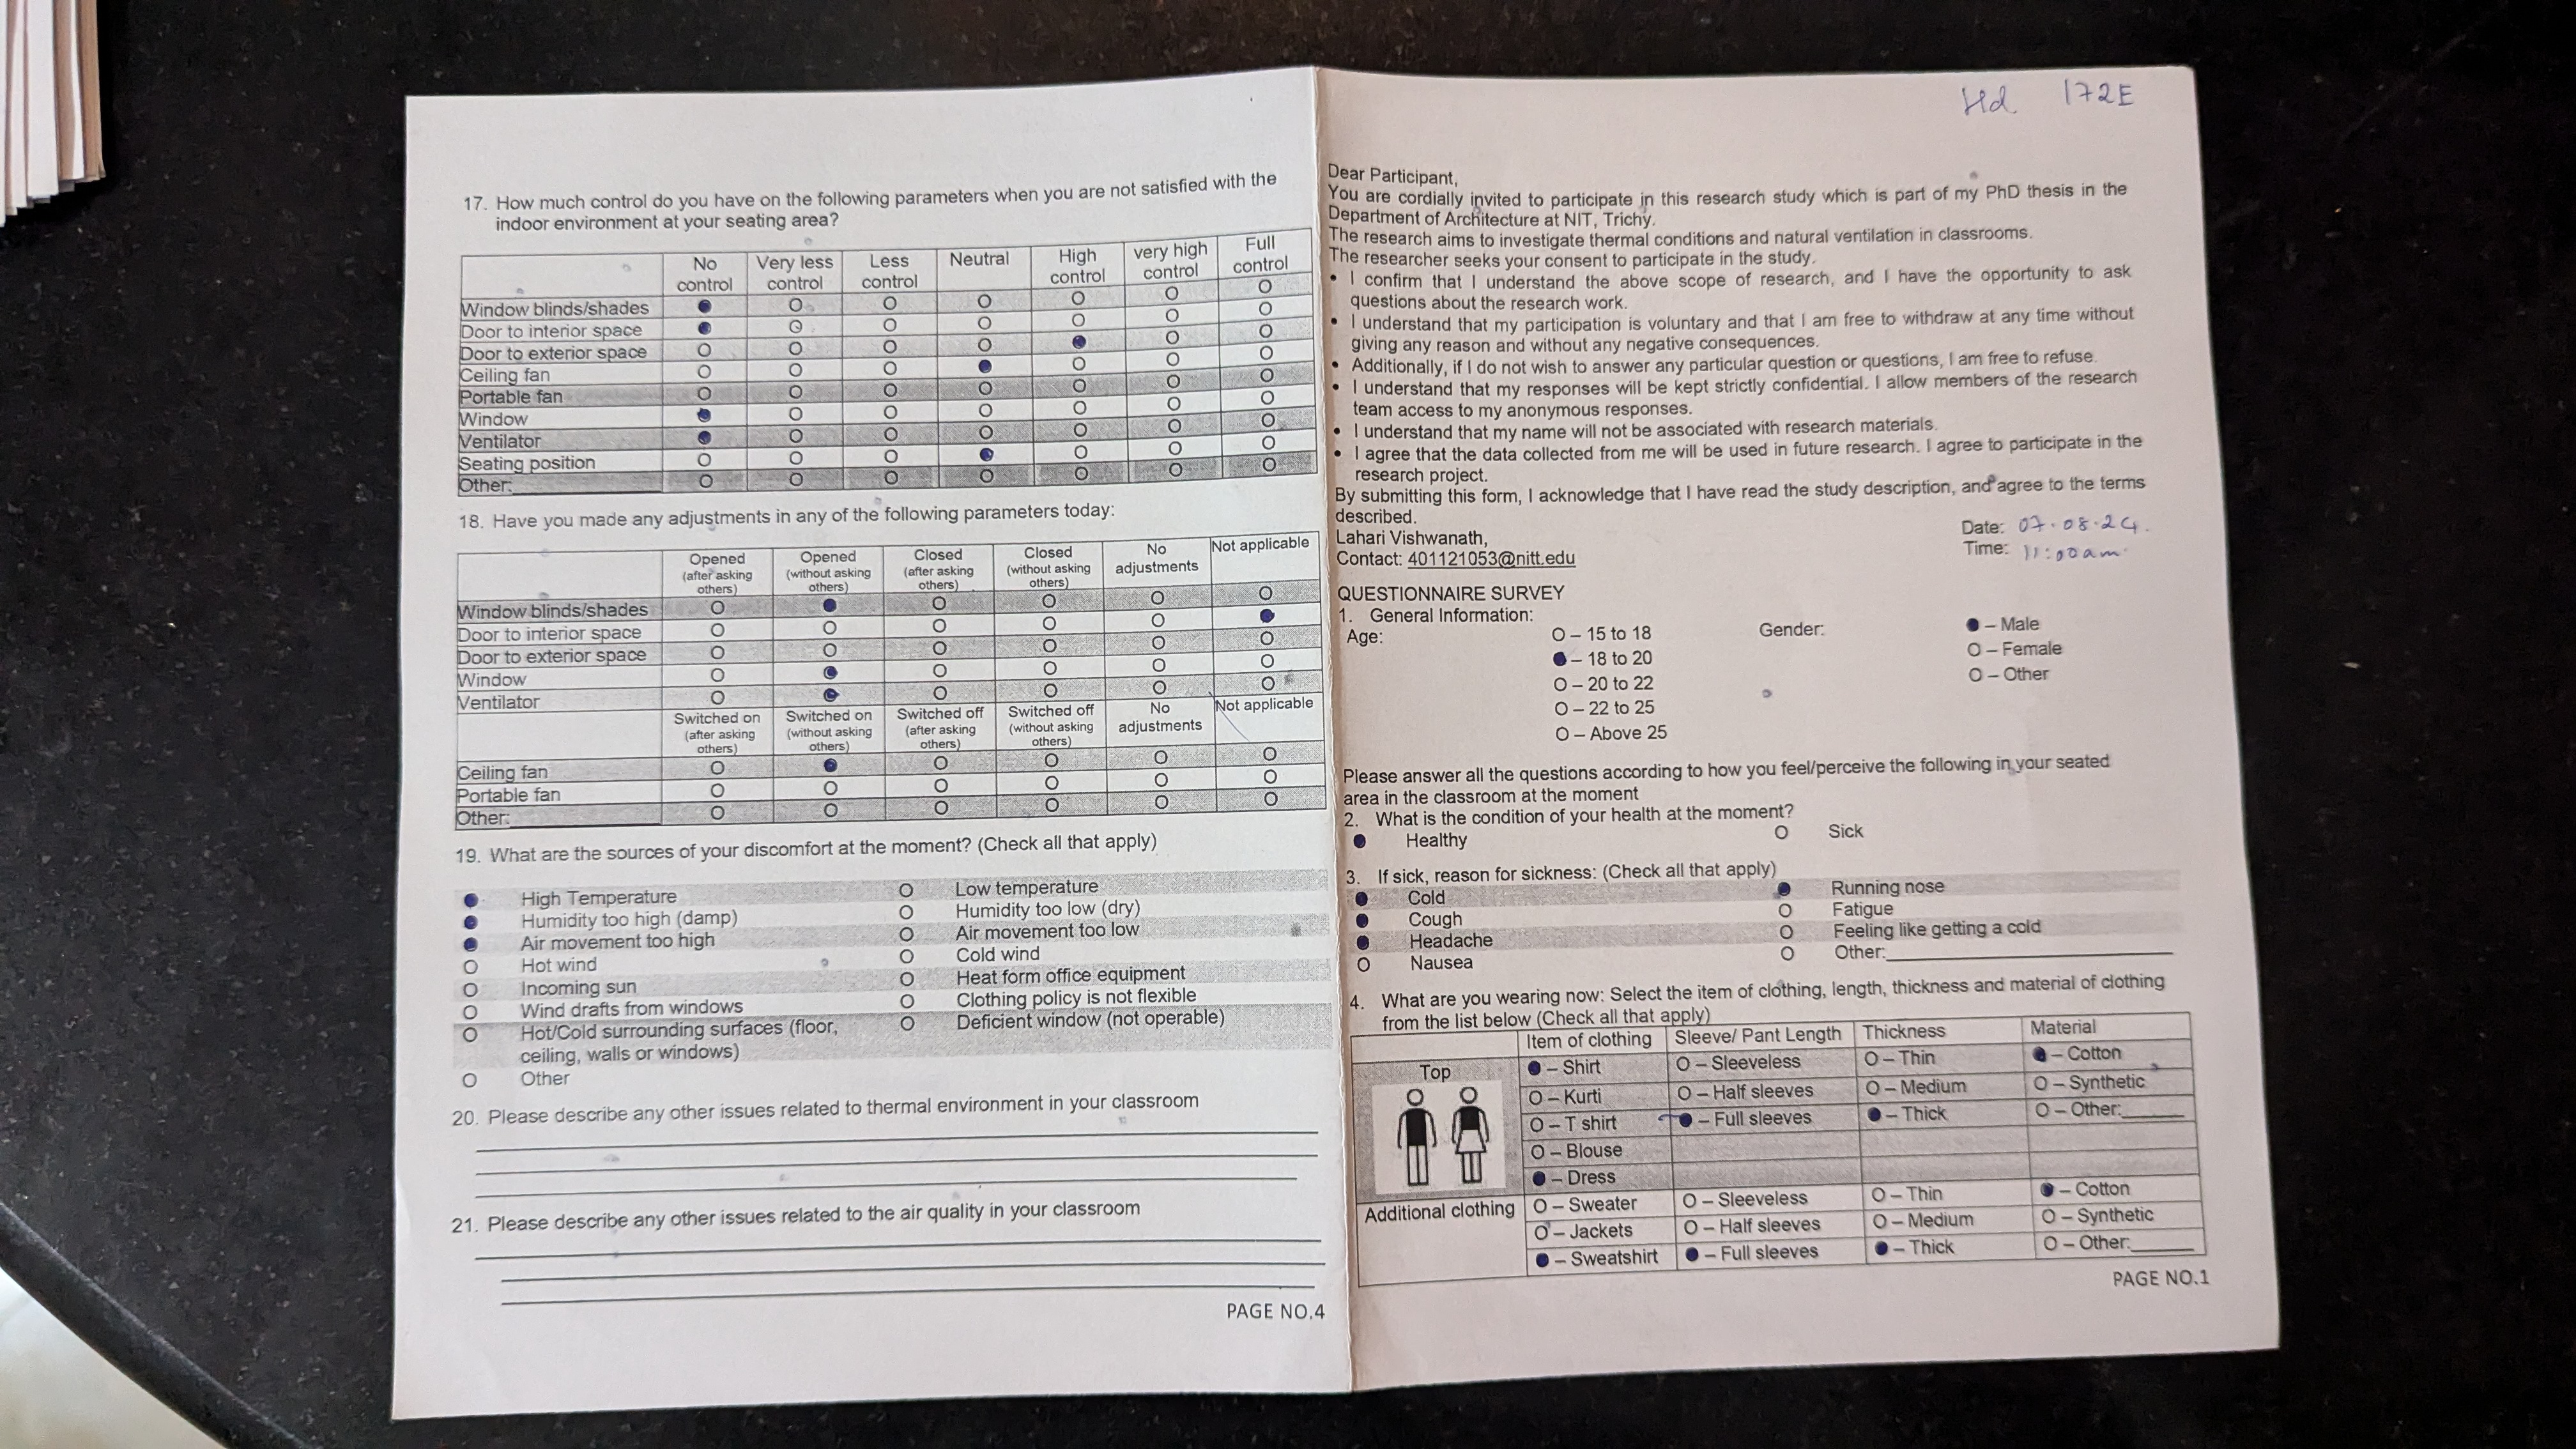 17. How much control do you have on the following parameters when you are not satisfied with the
indoor environment at your seating area?
No control Very less control Less control Neutral High control very high control Full control
Window blinds/shades
Door to interior space
Door to exterior space
Ceiling fan
Portable fan
Window
Ventilator
Seating position
Other:
18. Have you made any adjustments in any of the following parameters today:
Opened (after asking others) Opened (without asking others) Closed (after asking others) Closed (without asking others) No adjustments Not applicable
Window blinds/shades
Door to interior space
Door to exterior space
Window
Ventilator
Switched on (after asking others) Switched on (without asking others) Switched off (after asking others) Switched off (without asking others) No adjustments Not applicable
Ceiling fan
Portable fan
Other:
19. What are the sources of your discomfort at the moment? (Check all that apply)
High Temperature O Low temperature
Humidity too high (damp) O Humidity too low (dry)
Air movement too high O Air movement too low
O Hot wind O Cold wind
O Incoming sun O Heat form office equipment
O Wind drafts from windows O Clothing policy is not flexible
O Hot/Cold surrounding surfaces (floor, O Deficient window (not operable)
ceiling, walls or windows)
O Other
20. Please describe any other issues related to thermal environment in your classroom
21. Please describe any other issues related to the air quality in your classroom
PAGE NO.4
172E
Dear Participant,
You are cordially invited to participate in this research study which is part of my PhD thesis in the
Department of Architecture at NIT, Trichy.
The research aims to investigate thermal conditions and natural ventilation in classrooms.
The researcher seeks your consent to participate in the study.
• I confirm that I understand the above scope of research, and I have the opportunity to ask
questions about the research work.
• I understand that my participation is voluntary and that I am free to withdraw at any time without
giving any reason and without any negative consequences.
• Additionally, if I do not wish to answer any particular question or questions, I am free to refuse.
• I understand that my responses will be kept strictly confidential. I allow members of the research
team access to my anonymous responses.
• I understand that my name will not be associated with research materials.
• I agree that the data collected from me will be used in future research. I agree to participate in the
research project.
By submitting this form, I acknowledge that I have read the study description, and agree to the terms
described.
Lahari Vishwanath,
Contact: 401121053@nitt.edu
Date: 07.08.24.
Time: 11:00am.
QUESTIONNAIRE SURVEY
1. General Information:
Age: O – 15 to 18 Gender: – Male
– 18 to 20 O – Female
O – 20 to 22 O – Other
O – 22 to 25
O – Above 25
Please answer all the questions according to how you feel/perceive the following in your seated
area in the classroom at the moment
2. What is the condition of your health at the moment?
Healthy O Sick
3. If sick, reason for sickness: (Check all that apply)
Cold Running nose
Cough O Fatigue
Headache O Feeling like getting a cold
O Nausea O Other:
4. What are you wearing now: Select the item of clothing, length, thickness and material of clothing
from the list below (Check all that apply)
Item of clothing Sleeve/ Pant Length Thickness Material
Top – Shirt O – Sleeveless O – Thin – Cotton
O – Kurti O – Half sleeves O – Medium O – Synthetic
O – T shirt – Full sleeves – Thick O – Other:
O – Blouse
– Dress
Additional clothing O – Sweater O – Sleeveless O – Thin – Cotton
O – Jackets O – Half sleeves O – Medium O – Synthetic
– Sweatshirt – Full sleeves – Thick O – Other:
PAGE NO.1